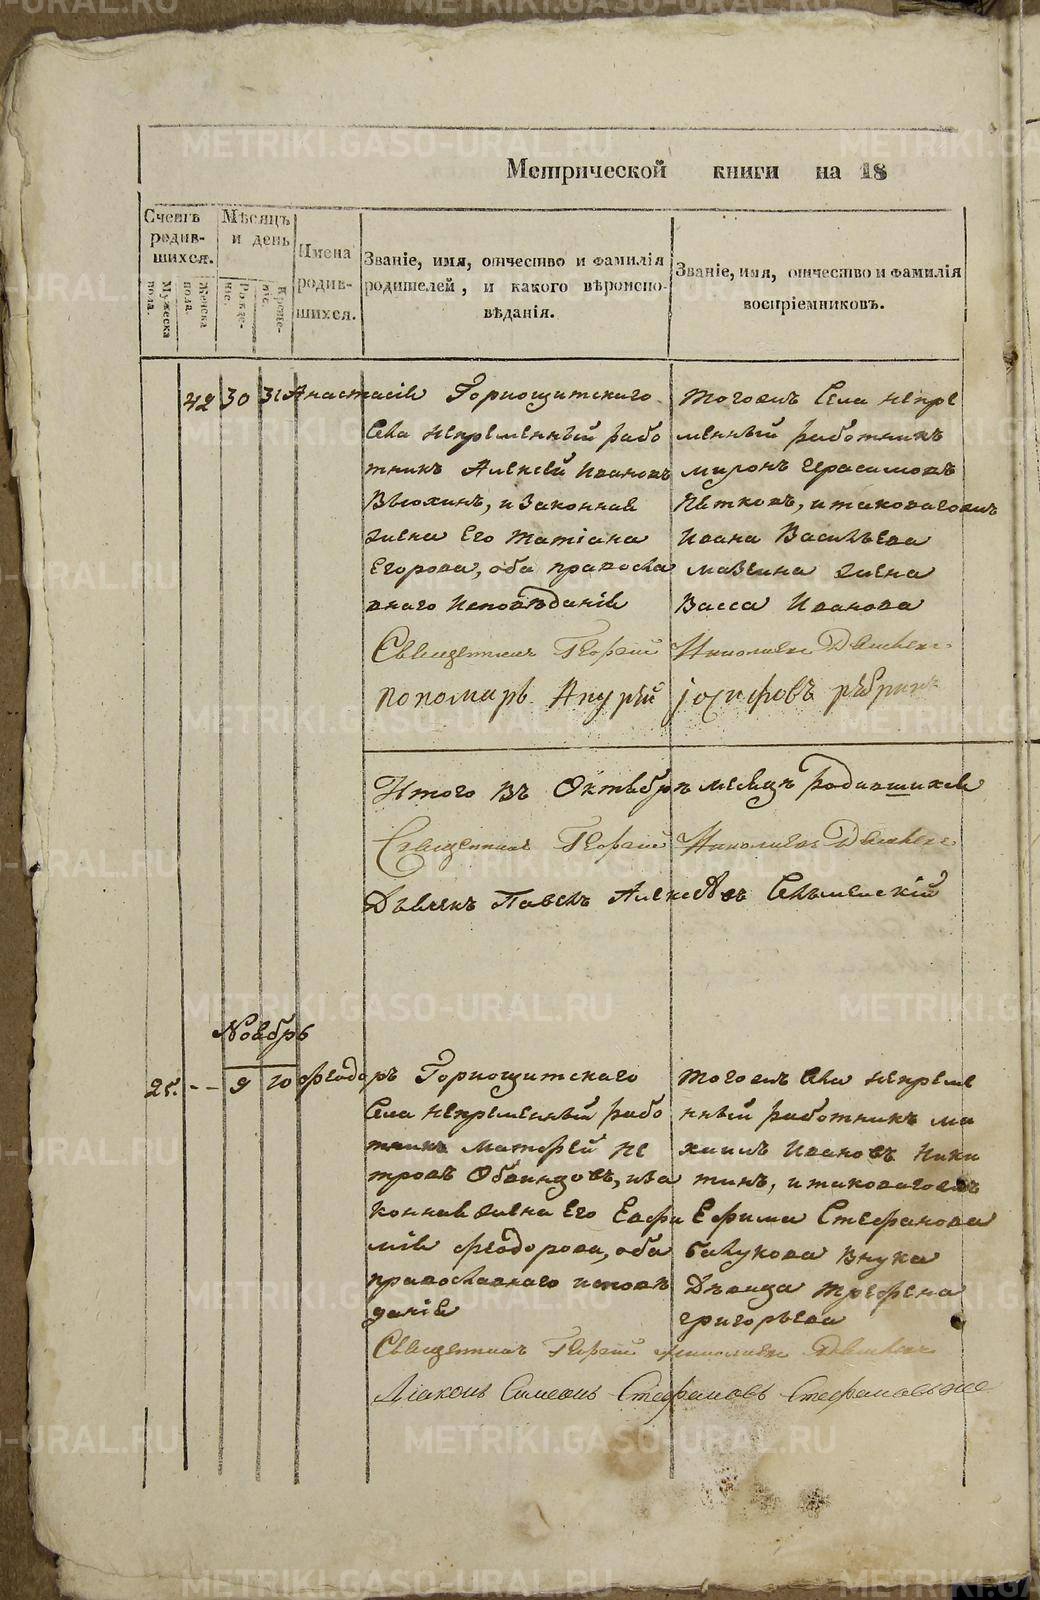 Метрической книги на 18
Счетъ родив-шихся.
Мужеска пола.
Женска пола.
Мѣсяцъ и день
Рожде-ніе.
Креще-ніе.
Имена родив-шихся.
Званіе, имя, отчество и фамилія
родителей, и какого вѣроиспо-
вѣданія.
Званіе, имя, отчество и фамилія
воспріемниковъ.
42 30 31 Анастасія
Горнощитскаго
села непременный рабо
тникъ Алексей Ивановъ
Вьюхинъ, и законная
жена его Татіана
Егорова, оба правосла
внаго исповѣданія
тогожъ села непре
менный работникъ
миронъ герасимовъ
Пѣтковъ, итаковагожъ
Ивана Васильева
мазеина жена
Васса Иванова
Священникъ Георгій Николаевъ
пономарь іосифовъ
Итого въ Октябрѣ месяцѣ родившихся
Священникъ Георгій Николаевъ
Дьячекъ Павелъ Алексѣевъ
Ноябрь
25. -- 9 10 Феодоръ
Горнощитскаго
села непременный рабо
тникъ матфей пе
тровъ Обвинцовъ, иза
конная жена его Евфи
мія феодорова, оба
православнаго исповѣ
данія
тогожъ села непреме
нный работникъ ма
хаилъ Ивановъ Ники
тинъ, итаковагожъ
Ефима Стефанова
балукова внука
Дѣвица трефена
григорьева
Священникъ Георгій Николаевъ
Діаконъ Симеонъ Стефановъ
METRIKI.GASO-URAL.RU